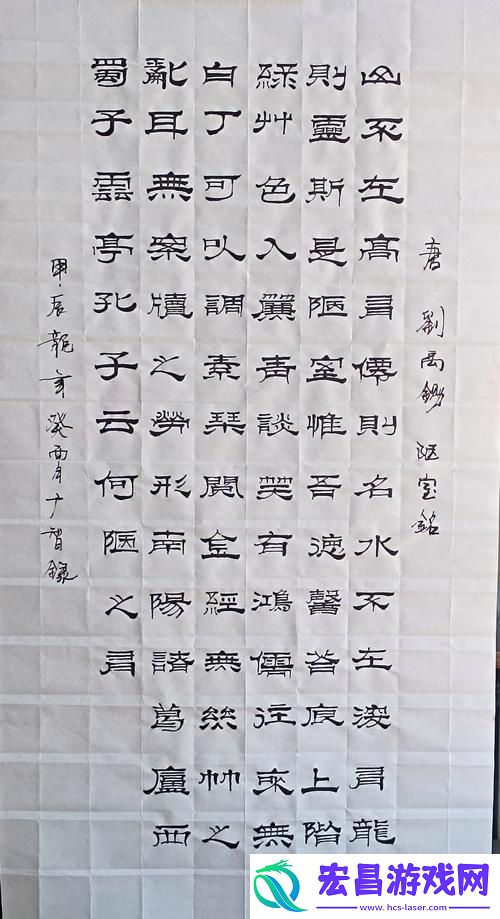 唐 劉禹錫 陋室銘
山不在高有僊則名水不在深有龍
則靈斯是陋室惟吾德馨苔痕上階
綠艸色入簾青談笑有鴻儒往來無
白丁可以調素琴閱金經無絲竹之
亂耳無案牘之勞形南陽諸葛廬西
蜀子雲亭孔子云何陋之有
甲辰龍癸酉月十智錄
宏昌游戏网
www.hcs-laser.com